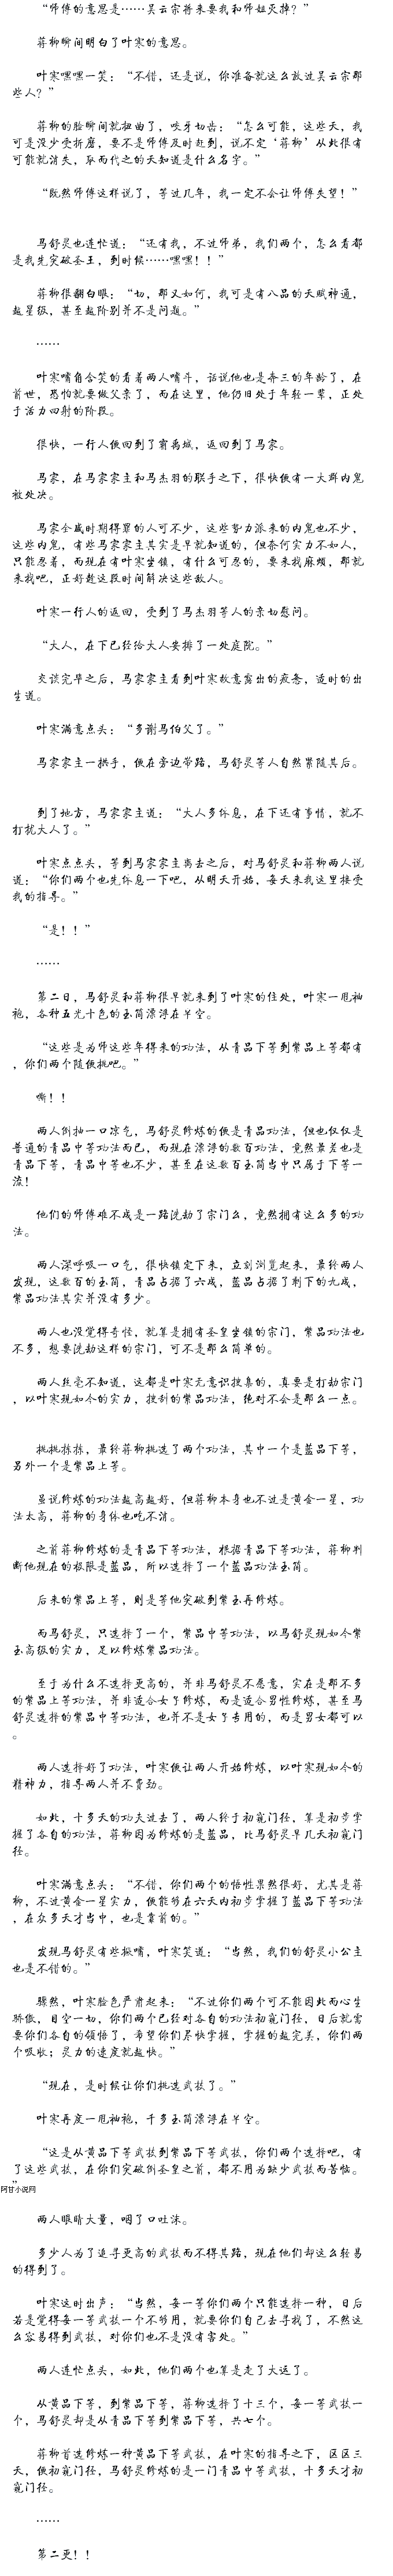 “师傅的意思是……吴云宗将来要我和师姐灭掉？”
蒋柳瞬间明白了叶寒的意思。
叶寒嘿嘿一笑：“不错，还是说，你准备就这么放过吴云宗那
些人？”
蒋柳的脸瞬间就扭曲了，咬牙切齿：“怎么可能，这些天，我
可是没少受折磨，要不是师傅及时赶到，说不定‘蒋柳’从此很有
可能就消失，取而代之的天知道是什么名字。”
“既然师傅这样说了，等过几年，我一定不会让师傅失望！”
马舒灵也连忙道：“还有我，不过师弟，我们两个，怎么看都
是我先突破圣王，到时候……嘿嘿！！”
蒋柳很翻白眼：“切，那又如何，我可是有八品的天赋神通，
越星级，甚至越阶别并不是问题。”
……
叶寒嘴角含笑的看着两人嘴斗，话说他也是奔三的年龄了，在
前世，恐怕就要做父亲了，而在这里，他仍旧处于年轻一辈，正处
于活力四射的阶段。
很快，一行人便回到了霸禹城，返回到了马家。
马家，在马家家主和马杰羽的联手之下，很快便有一大群内鬼
被处决。
马家全盛时期得罪的人可不少，这些势力派来的内鬼也不少，
这些内鬼，有些马家家主其实是早就知道的，但奈何实力不如人，
只能忍着，而现在有叶寒坐镇，有什么可忍的，要来找麻烦，那就
来找吧，正好趁这段时间解决这些敌人。
叶寒一行人的返回，受到了马杰羽等人的亲切慰问。
“大人，在下已经给大人安排了一处庭院。”
交谈完毕之后，马家家主看到叶寒故意露出的疲惫，适时的出
生道。
叶寒满意点头：“多谢马伯父了。”
马家家主一拱手，便在旁边带路，马舒灵等人自然紧随其后。
到了地方，马家家主道：“大人多休息，在下还有事情，就不
打扰大人了。”
叶寒点点头，等到马家家主离去之后，对马舒灵和蒋柳两人说
道：“你们两个也先休息一下吧，从明天开始，每天来我这里接受
我的指导。”
“是！！”
……
第二日，马舒灵和蒋柳很早就来到了叶寒的住处，叶寒一甩袖
袍，各种五光十色的玉简漂浮在半空。
“这些是为师这些年得来的功法，从青品下等到紫品上等都有
，你们两个随便挑吧。”
嘶！！
两人倒抽一口凉气，马舒灵修炼的便是青品功法，但也仅仅是
普通的青品中等功法而已，而现在漂浮的数百功法，竟然最差也是
青品下等，青品中等也不少，甚至在这数百玉简当中只属于下等一
流！
他们的师傅难不成是一路洗劫了宗门么，竟然拥有这么多的功
法。
两人深呼吸一口气，很快镇定下来，立刻浏览起来，最终两人
发现，这数百的玉简，青品占据了六成，蓝品占据了剩下的九成，
紫品功法其实并没有多少。
两人也没觉得奇怪，就算是拥有圣皇坐镇的宗门，紫品功法也
不多，想要洗劫这样的宗门，可不是那么简单的。
两人丝毫不知道，这都是叶寒无意识搜集的，真要是打劫宗门
，以叶寒现如今的实力，搜刮的紫品功法，绝对不会是那么一点。
挑挑拣拣，最终蒋柳挑选了两个功法，其中一个是蓝品下等，
另外一个是紫品上等。
虽说修炼的功法越高越好，但蒋柳本身也不过是黄金一星，功
法太高，蒋柳的身体也吃不消。
之前蒋柳修炼的是青品下等功法，根据青品下等功法，蒋柳判
断他现在的极限是蓝品，所以选择了一个蓝品功法玉简。
后来的紫品上等，则是等他突破到紫玉再修炼。
而马舒灵，只选择了一个，紫品中等功法，以马舒灵现如今紫
玉高级的实力，足以修炼紫品功法。
至于为什么不选择更高的，并非马舒灵不愿意，实在是那不多
的紫品上等功法，并非适合女子修炼，而是适合男性修炼，甚至马
舒灵选择的紫品中等功法，也并不是女子专用的，而是男女都可以
。
两人选择好了功法，叶寒便让两人开始修炼，以叶寒现如今的
精神力，指导两人并不费劲。
如此，十多天的功夫过去了，两人终于初窥门径，算是初步掌
握了各自的功法，蒋柳因为修炼的是蓝品，比马舒灵早几天初窥门
径。
叶寒满意点头：“不错，你们两个的悟性果然很好，尤其是蒋
柳，不过黄金一星实力，便能够在六天内初步掌握了蓝品下等功法
，在众多天才当中，也是靠前的。”
发现马舒灵有些撅嘴，叶寒笑道：“当然，我们的舒灵小公主
也是不错的。”
骤然，叶寒脸色严肃起来：“不过你们两个可不能因此而心生
骄傲，目空一切，你们两个已经对各自的功法初窥门径，日后就需
要你们各自的领悟了，希望你们尽快掌握，掌握的越完美，你们两
个吸收；灵力的速度就越快。”
“现在，是时候让你们挑选武技了。”
叶寒再度一甩袖袍，千多玉简漂浮在半空。
“这是从黄品下等武技到紫品下等武技，你们两个选择吧，有
了这些武技，在你们突破倒圣皇之前，都不用为缺少武技而苦恼。
”
阿甘小说网
两人眼睛大量，咽了口吐沫。
多少人为了追寻更高的武技而不得其路，现在他们却这么轻易
的得到了。
叶寒这时出声：“当然，每一等你们两个只能选择一种，日后
若是觉得每一等武技一个不够用，就要你们自己去寻找了，不然这
么容易得到武技，对你们也不是没有害处。”
两人连忙点头，如此，他们两个也算是走了大运了。
从黄品下等，到紫品下等，蒋柳选择了十三个，每一等武技一
个，马舒灵却是从青品下等到紫品下等，共七个。
蒋柳首选修炼一种黄品下等武技，在叶寒的指导之下，区区三
天，便初窥门径，马舒灵修炼的是一门青品中等武技，十多天才初
窥门径。
……
第二更！！